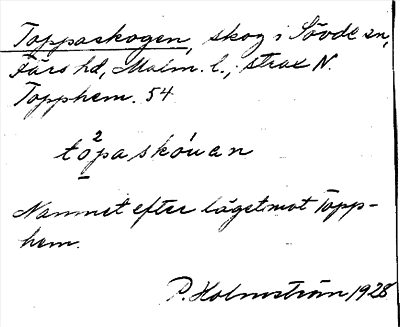 Toppaskogen, skog i Sövde sn,
Färs hd, Malm. l., strax N.
Topphem. 54
to²paskóuan
Namnet efter läget mot Topp-
hem.
P. Holmström 1928